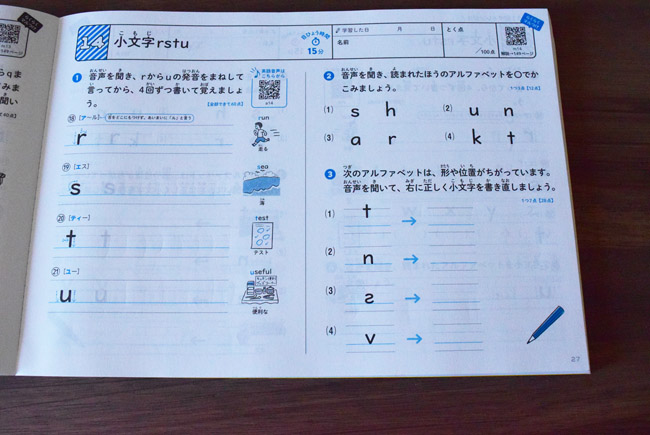 14
小文字rstu
目ひょう時間
15分
学習した日　月　日
名前
とく点
/100点
解説→149ページ
1 音声を聞き、rからuの発音をまねして
言ってから、4回ずつ書いて覚えましょ
う。
【全部できて60点】
英語音声は
こちらから
⑱ [アール]
r
run
走る
⑲ [エス]
s
sea
海
⑳ [ティー]
t
test
テスト
㉑ [ユー]
u
useful
便利な
2 音声を聞き、読まれたほうのアルファベットを〇でか
こみましょう。
1つ3点【12点】
(1) s h
(2) u n
(3) a r
(4) k t
3 次のアルファベットは、形や位置がちがっています。
音声を聞いて、右に正しく小文字を書き直しましょう。
1つ7点【28点】
(1) t →
(2) n →
(3) ƨ →
(4) v →
27